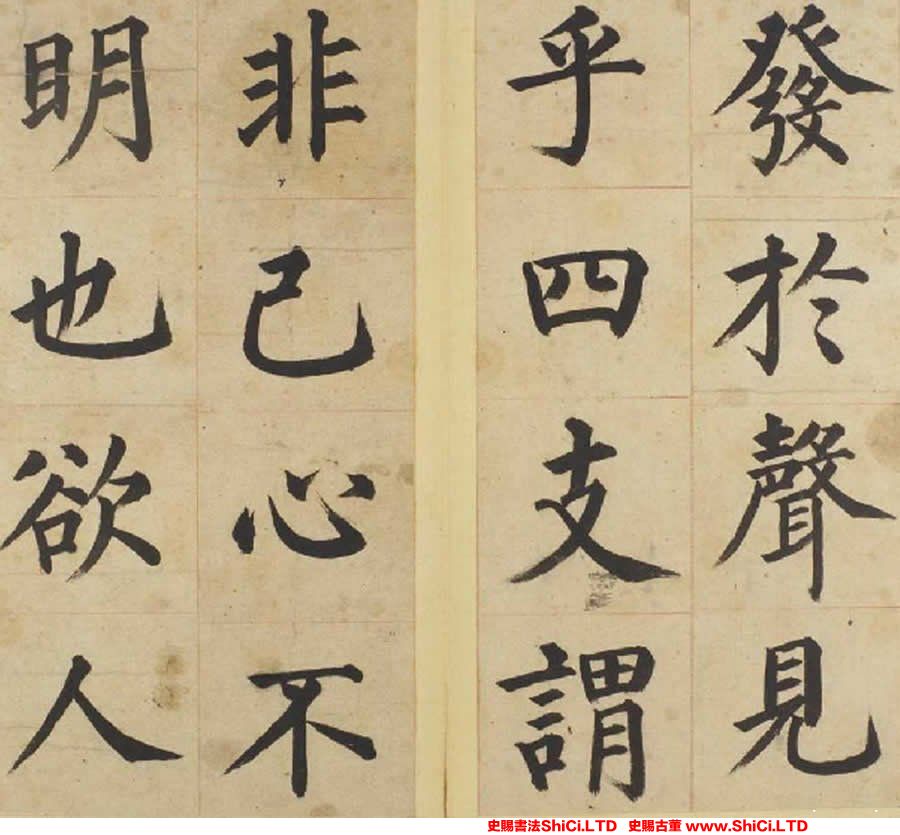 發於聲見
乎四支謂
非己心不
明也欲人
史賜書法ShiCi.LTD 史賜古董 www.ShiCi.LTD